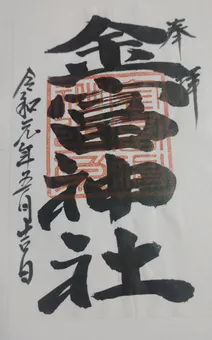 奉拝
金富神社
令和元年五月十吉日